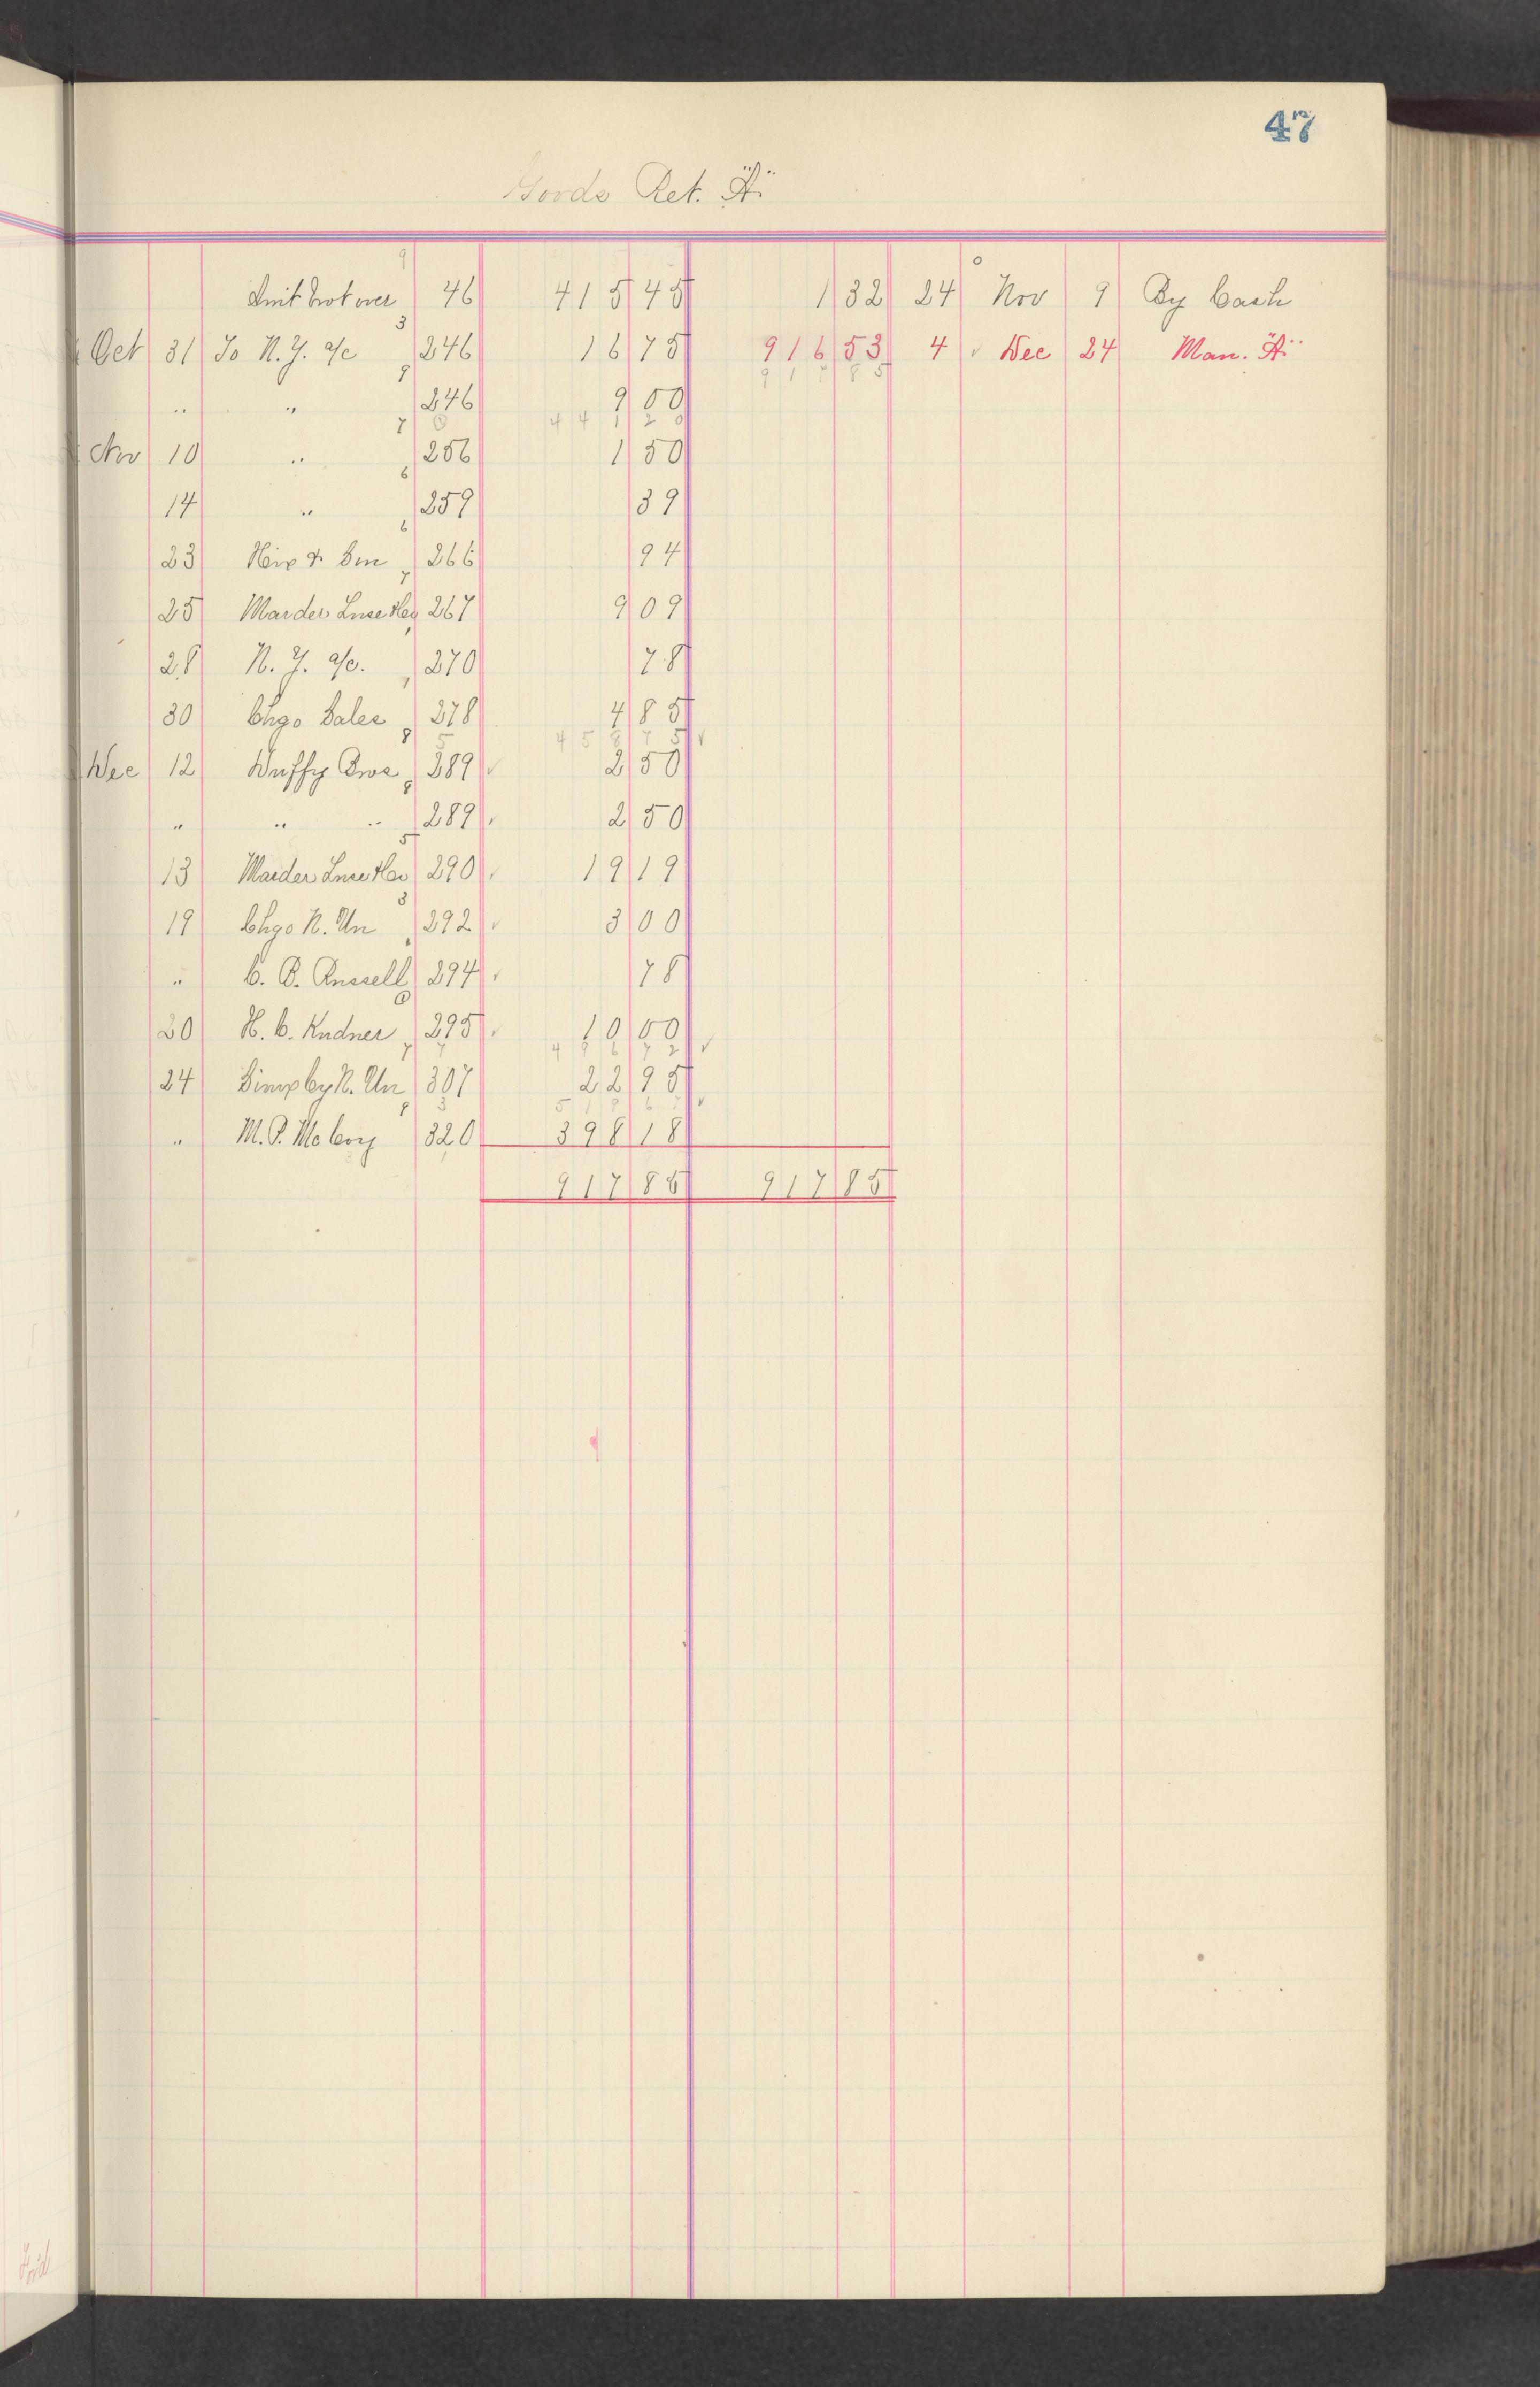 47
Goods Ret. "A"
Amt brot over 46 415 45 1 32 24 Nov 9 By Cash
Oct 31 To N.Y. a/c 246 16 75 916 53 4 Dec 24 Man. "A"
" " 246 9 00
44 1 20
Nov 10 " 256 1 50
14 " 259 39
23 Hix & Son 266 94
25 Marder Luse & Co 267 9 09
28 N.Y. a/c. 270 78
30 Chgo Sales 278 4 85
Dec 12 Duffy Bros 289 2 50
" " " 289 2 50
13 Marder Luse & Co 290 19 19
19 Chgo N. Un 292 3 00
" C. B. Russell 294 78
20 H. C. Kudner 295 10 00
496 72
24 Simp by N. Un 307 22 95
519 67
" M. P. McCoy 320 398 18
917 85 917 85